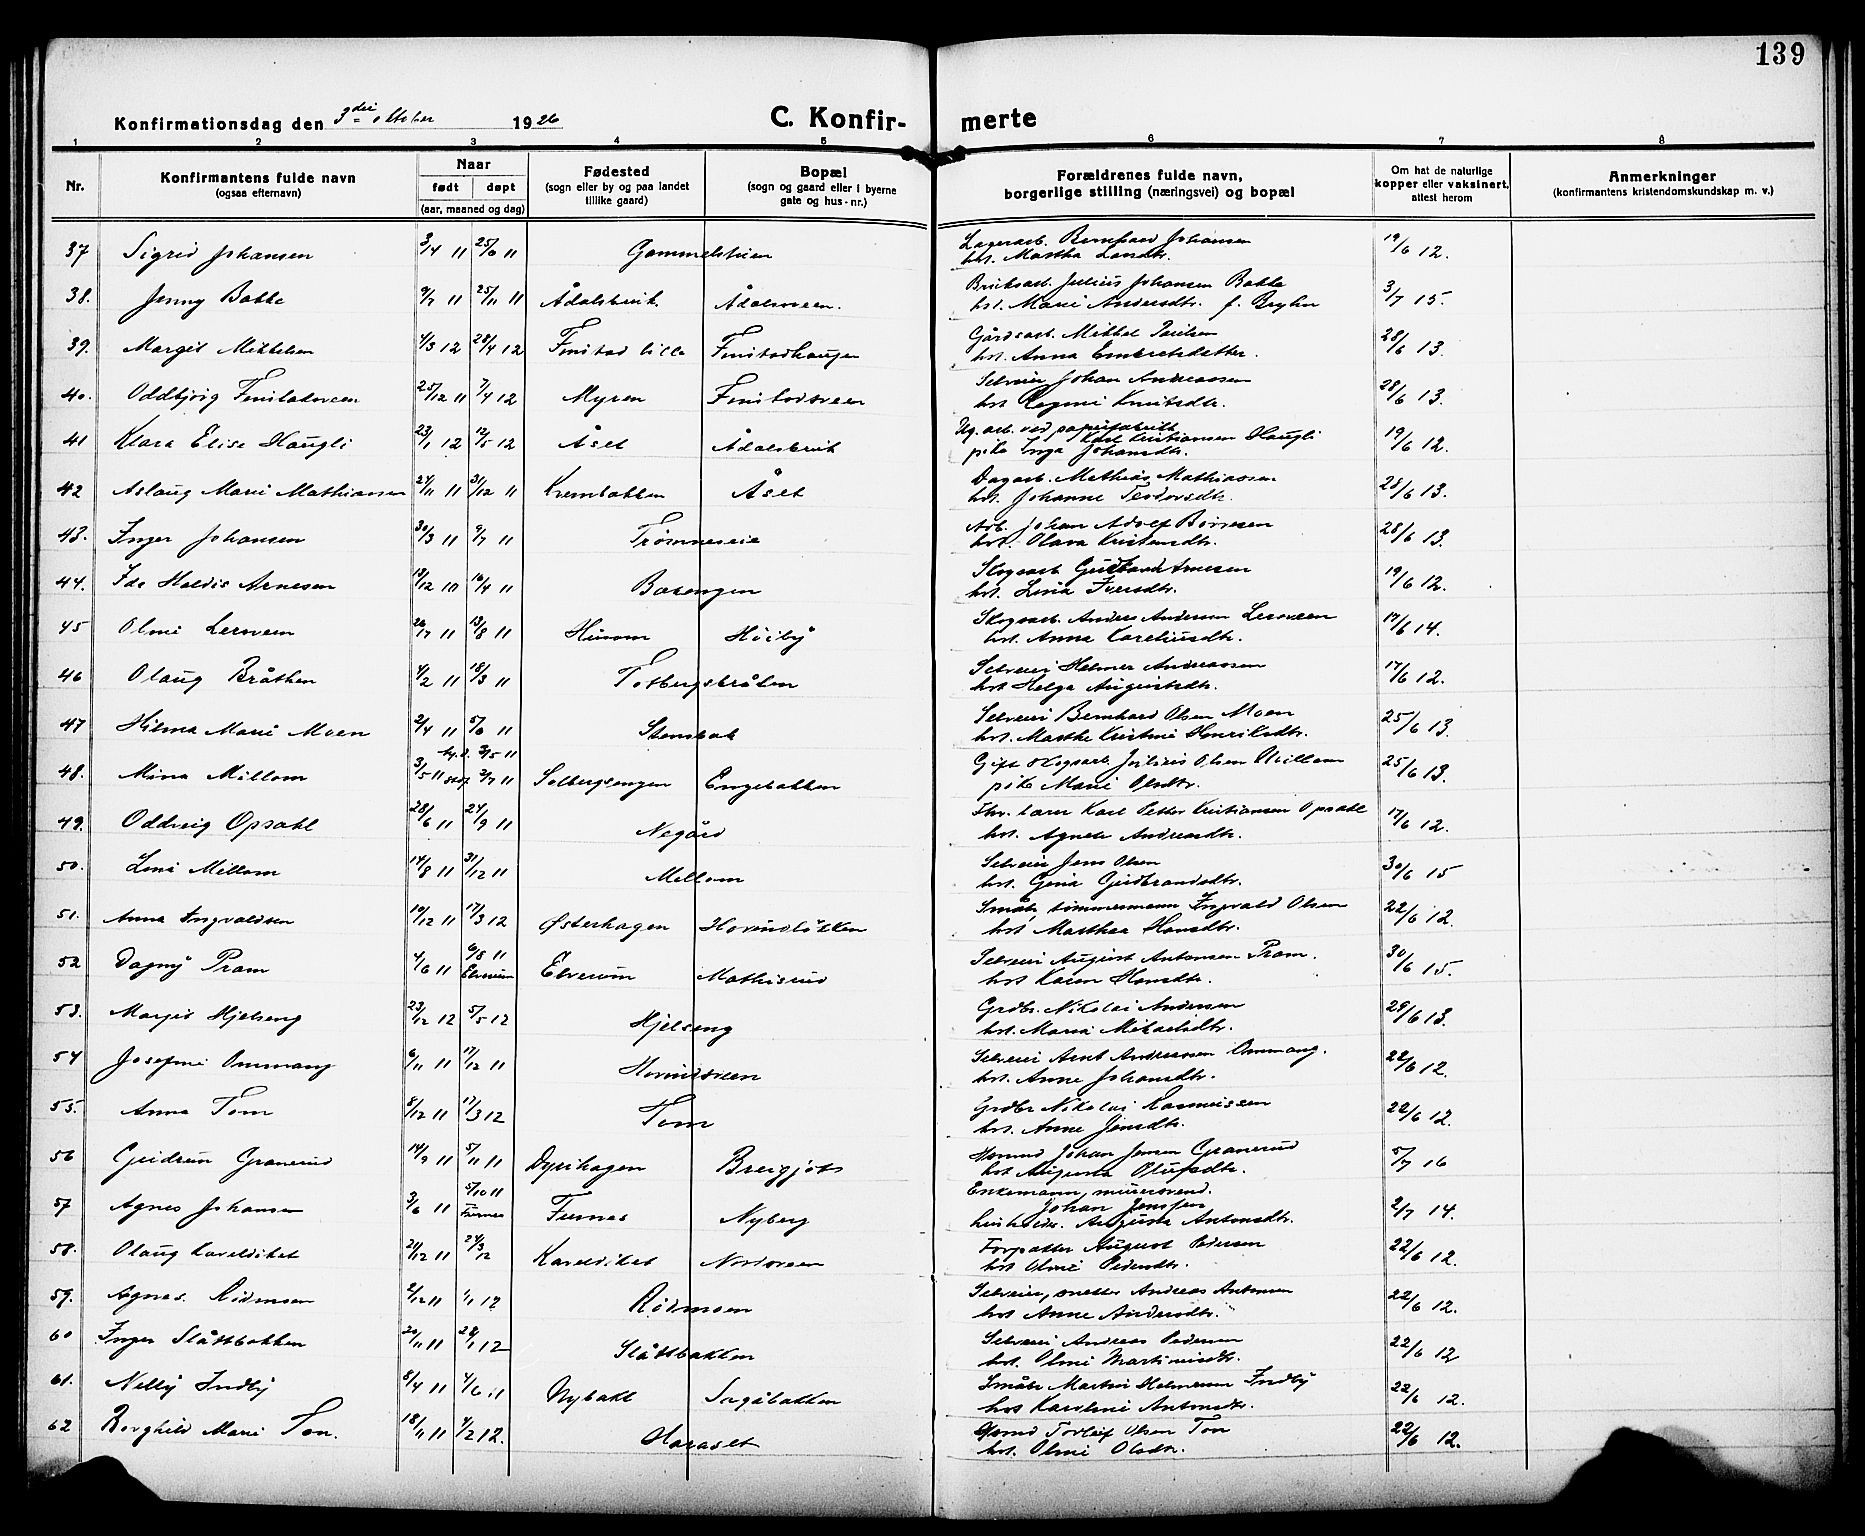 139
Konfirmationsdag den 3die oktober 1926
C. Konfir- merte
1 2 3 4 5 6 7 8
Nr.
Konfirmantens fulde navn
(ogsaa efternavn)
Naar
født døpt
(aar, maaned og dag)
Fødested
(sogn eller by og paa landet
tillike gaard)
Bopæl
(sogn og gaard eller i byerne
gate og hus-nr.)
Forældrenes fulde navn,
borgerlige stilling (næringsvei) og bopæl
Om hat de naturlige
kopper eller vaksinert,
attest herom
Anmerkninger
(konfirmantens kristendomskundskap m. v.)
37 Sigrid Johansen 3/4 11 25/6 11 Gammelstuen Lagerarb. Bernhard Johansen 19/6 12.
hst. Martha Larsdtr.
38. Jenny Bakke 9/7 11 25/11 11 Ådalsbruk Ådalsveen. Bruksarb. Julius Johansen Bakke 3/7 15.
hst. Marie Andersdtr. f. Bryhn
39. Margit Mikkelsen 4/3 12 28/4 12 Finstad lille Finstadhaugen Gårdsarb. Mikkel Paulsen 28/6 13.
hst. Anna Embretsdatter.
40. Oddbjørg Finstadsveen 25/12 11 7/4 12 Myren Finstadsveen Selveier Johan Andreassen 28/6 13.
hst. Ragna Knutsdtr.
41 Klara Elise Haugli 23/1 12 12/5 12 Åset Ådalsbruk Ug. arb. ved papirfabrikk 19/6 12.
Karl Kristiansen Haugli
pike Inga Johansdtr.
42 Aslaug Marie Mathiassen 27/11 11 31/12 11 Kvernbakken Åset Dagarb. Mathias Mathiassen 28/6 13.
hst. Johanne Teodorsdtr.
43. Inger Johansen 30/3 11 9/7 11 Trømneseie Arb. Johan Adolf Børresen 28/6 13.
hst. Olava Kristensdtr.
44. Ida Haldis Arnesen 13/12 10 16/4 11 Basengen Skogsarb. Gustav Arnesen 19/6 12.
hst. Lina Iversdtr.
45 Olive Lersveen 26/7 11 13/8 11 Husom Høiby Skogsarb. Anders Andersen Lersveen 17/6 14.
hst. Anna Kareliusdtr.
46 Olaug Bråthen 4/2 11 18/3 11 Torbergsbråten Selveier Helmer Andreassen 17/6 12.
hst Helga Augustsdtr.
47 Hilma Marie Moen 2/4 11 5/6 11 Stensbak Selveier Bernhard Olsen Moen 25/6 13.
hst. Marthe Kristine Henriksdtr.
48. Mina Millom 3/5 11 hj.d. 3/5 11 stadf. 2/7 11 Solbergsengen Engebakken Gift skogsarb. Julius Olsen Millom 25/6 13.
pike Marie Olsdtr.
49. Oddveig Opsahl 28/6 11 24/9 11 Negård Fhv. lærer Karl Petter Kristiansen Opsahl 17/6 12.
hst. Agnete Andreasdtr.
50. Lina Millom 14/8 11 31/12 11 Millom Selveier Jens Olsen 30/6 15
hst. Gina Gudbrandsdtr.
51. Anna Ingvaldsen 10/12 11 17/3 12 Østerhagen Hovindløkken Småbr, tømmermann Ingvald Olsen 22/6 12.
hst Marthea Hansdtr.
52 Dagny Pram 4/6 11 6/8 11 Elverum Elverum Mathisrud Selveier August Antonsen Pram. 30/6 15.
hst Karen Hansdtr.
53. Margit Hjelseng 23/12 12 5/5 12 Hjelseng Grdbr. Nikolai Andersen 29/6 13.
hst. Maria Mikaelsdtr.
54 Josefine Ommang 6/11 11 17/12 11 Hovindsveen Selveier Arnt Andreassen Ommang. 22/6 12.
hst. Anne Johansdtr.
55. Anna Tom 8/12 11 17/3 12 Tom Grdbr Nikolai Rasmussen 22/6 12.
hst. Anne Jensdtr.
56 Gudrun Granerud 14/9 11 5/11 11 Dyrihagen Bergjots Husmd Johan Jensen Granerud 5/7 16
hst Augusta Olufsdtr.
57 Agnes Johansen 3/6 11 5/10 11 Furnes Furnes Nyberg Enkemann, murersvend. 2/7 14.
Johan Jensen
husholder. Augusta Antonsdtr.
58. Olaug Kareldiket 21/12 11 24/3 12 Kareldiket Nordsveen Forpakter August Pedersen 22/6 12.
hst Olivie Pedersdtr.
59. Agnes Rødmoen 2/12 11 1/1 12 Rødmoen Selveier, snekker Andreas Antonsen 22/6 12.
hst Anne Andersdtr.
60 Inger Slåttbakken 20/11 11 28/1 12 Slåttbakken Selveier Andreas Pedersen 22/6 12
hst. Olive Martiniusdtr.
61. Nelly Indby 8/4 11 4/6 11 Nybakk Sagåbakken Småbr Martin Helmersen Indby 22/6 12.
hst Karoline Antonsdtr.
62 Borghild Marie Ton. 18/11 11 4/2 12. Haraset Gsmd Torleif Olsen Ton 22/6 12.
hst. Olivie Olsdtr.